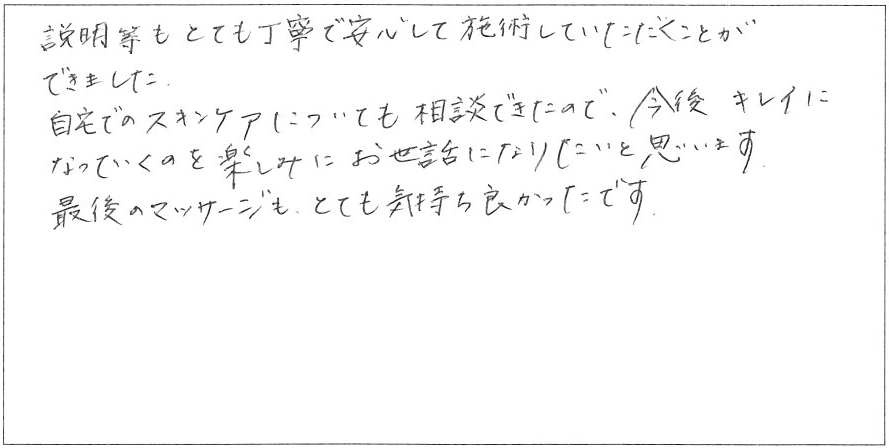 説明等もとても丁寧で安心して施術していただくことが
できました.
自宅でのスキンケアについても相談できたので、今後 キレイに
なっていくのを楽しみにお世話になりたいと思います.
最後のマッサージも、とても気持ち良かったです.